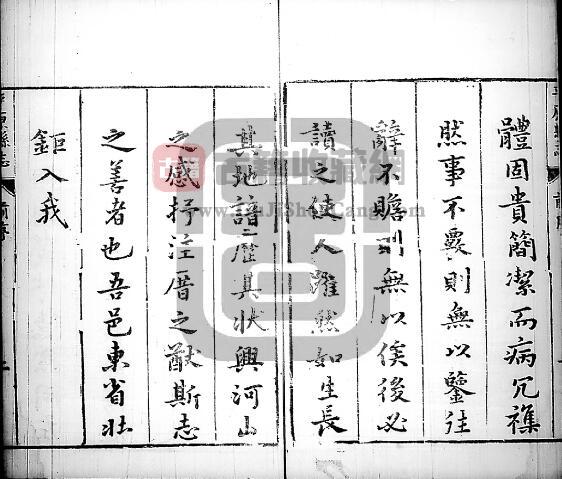 體固貴簡潔而病冗襍
然事不覈則無以鑒往
辭不贍則無以俟後必
讀之使人躍然如生長
其地諳歷其狀興河山
之感抒注厝之猷斯志
之善者也吾邑東省壯
鉅入我
古籍收藏網
www.GuJiShouCang.com